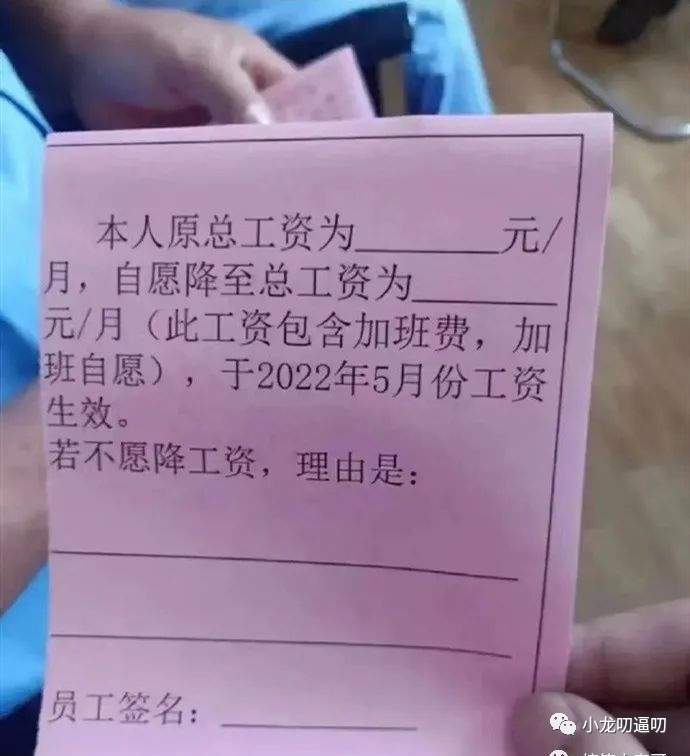 本人原总工资为______元/
月，自愿降至总工资为______
元/月（此工资包含加班费，加
班自愿），于2022年5月份工资
生效。
若不愿降工资，理由是：
员工签名：______
小龙叨逼叨